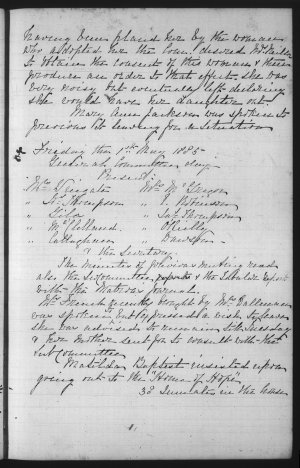 having been placed here by the woman
who adopted her the Com. desired
to obtain the consent of this woman &
produce an order to that effect. she was
very noisy but eventually left declaring
she would have her daughter out.
Mary Ann Jackson was spoken to
previous to leaving for a situation
Friday the 1st May 1885
Committee day
Present
Mrs Wingate Mrs McGregor
" Thompson " Robinson
" " Thompson
" McClelland " O'Reilly
" Callaghan " Davidson
" the Secretary
The minutes of previous meeting read
also the Subcommittee report & the Labour report
with the Matron's Journal.
Mrs French
was spoken to & expressed a wish to leave
she was advised to remain till Tuesday
& her mother sent for to consult with that
Sub Committee
Matilda Baptist insisted upon
going out to the "Home of Hope"
32 Inmates in the house